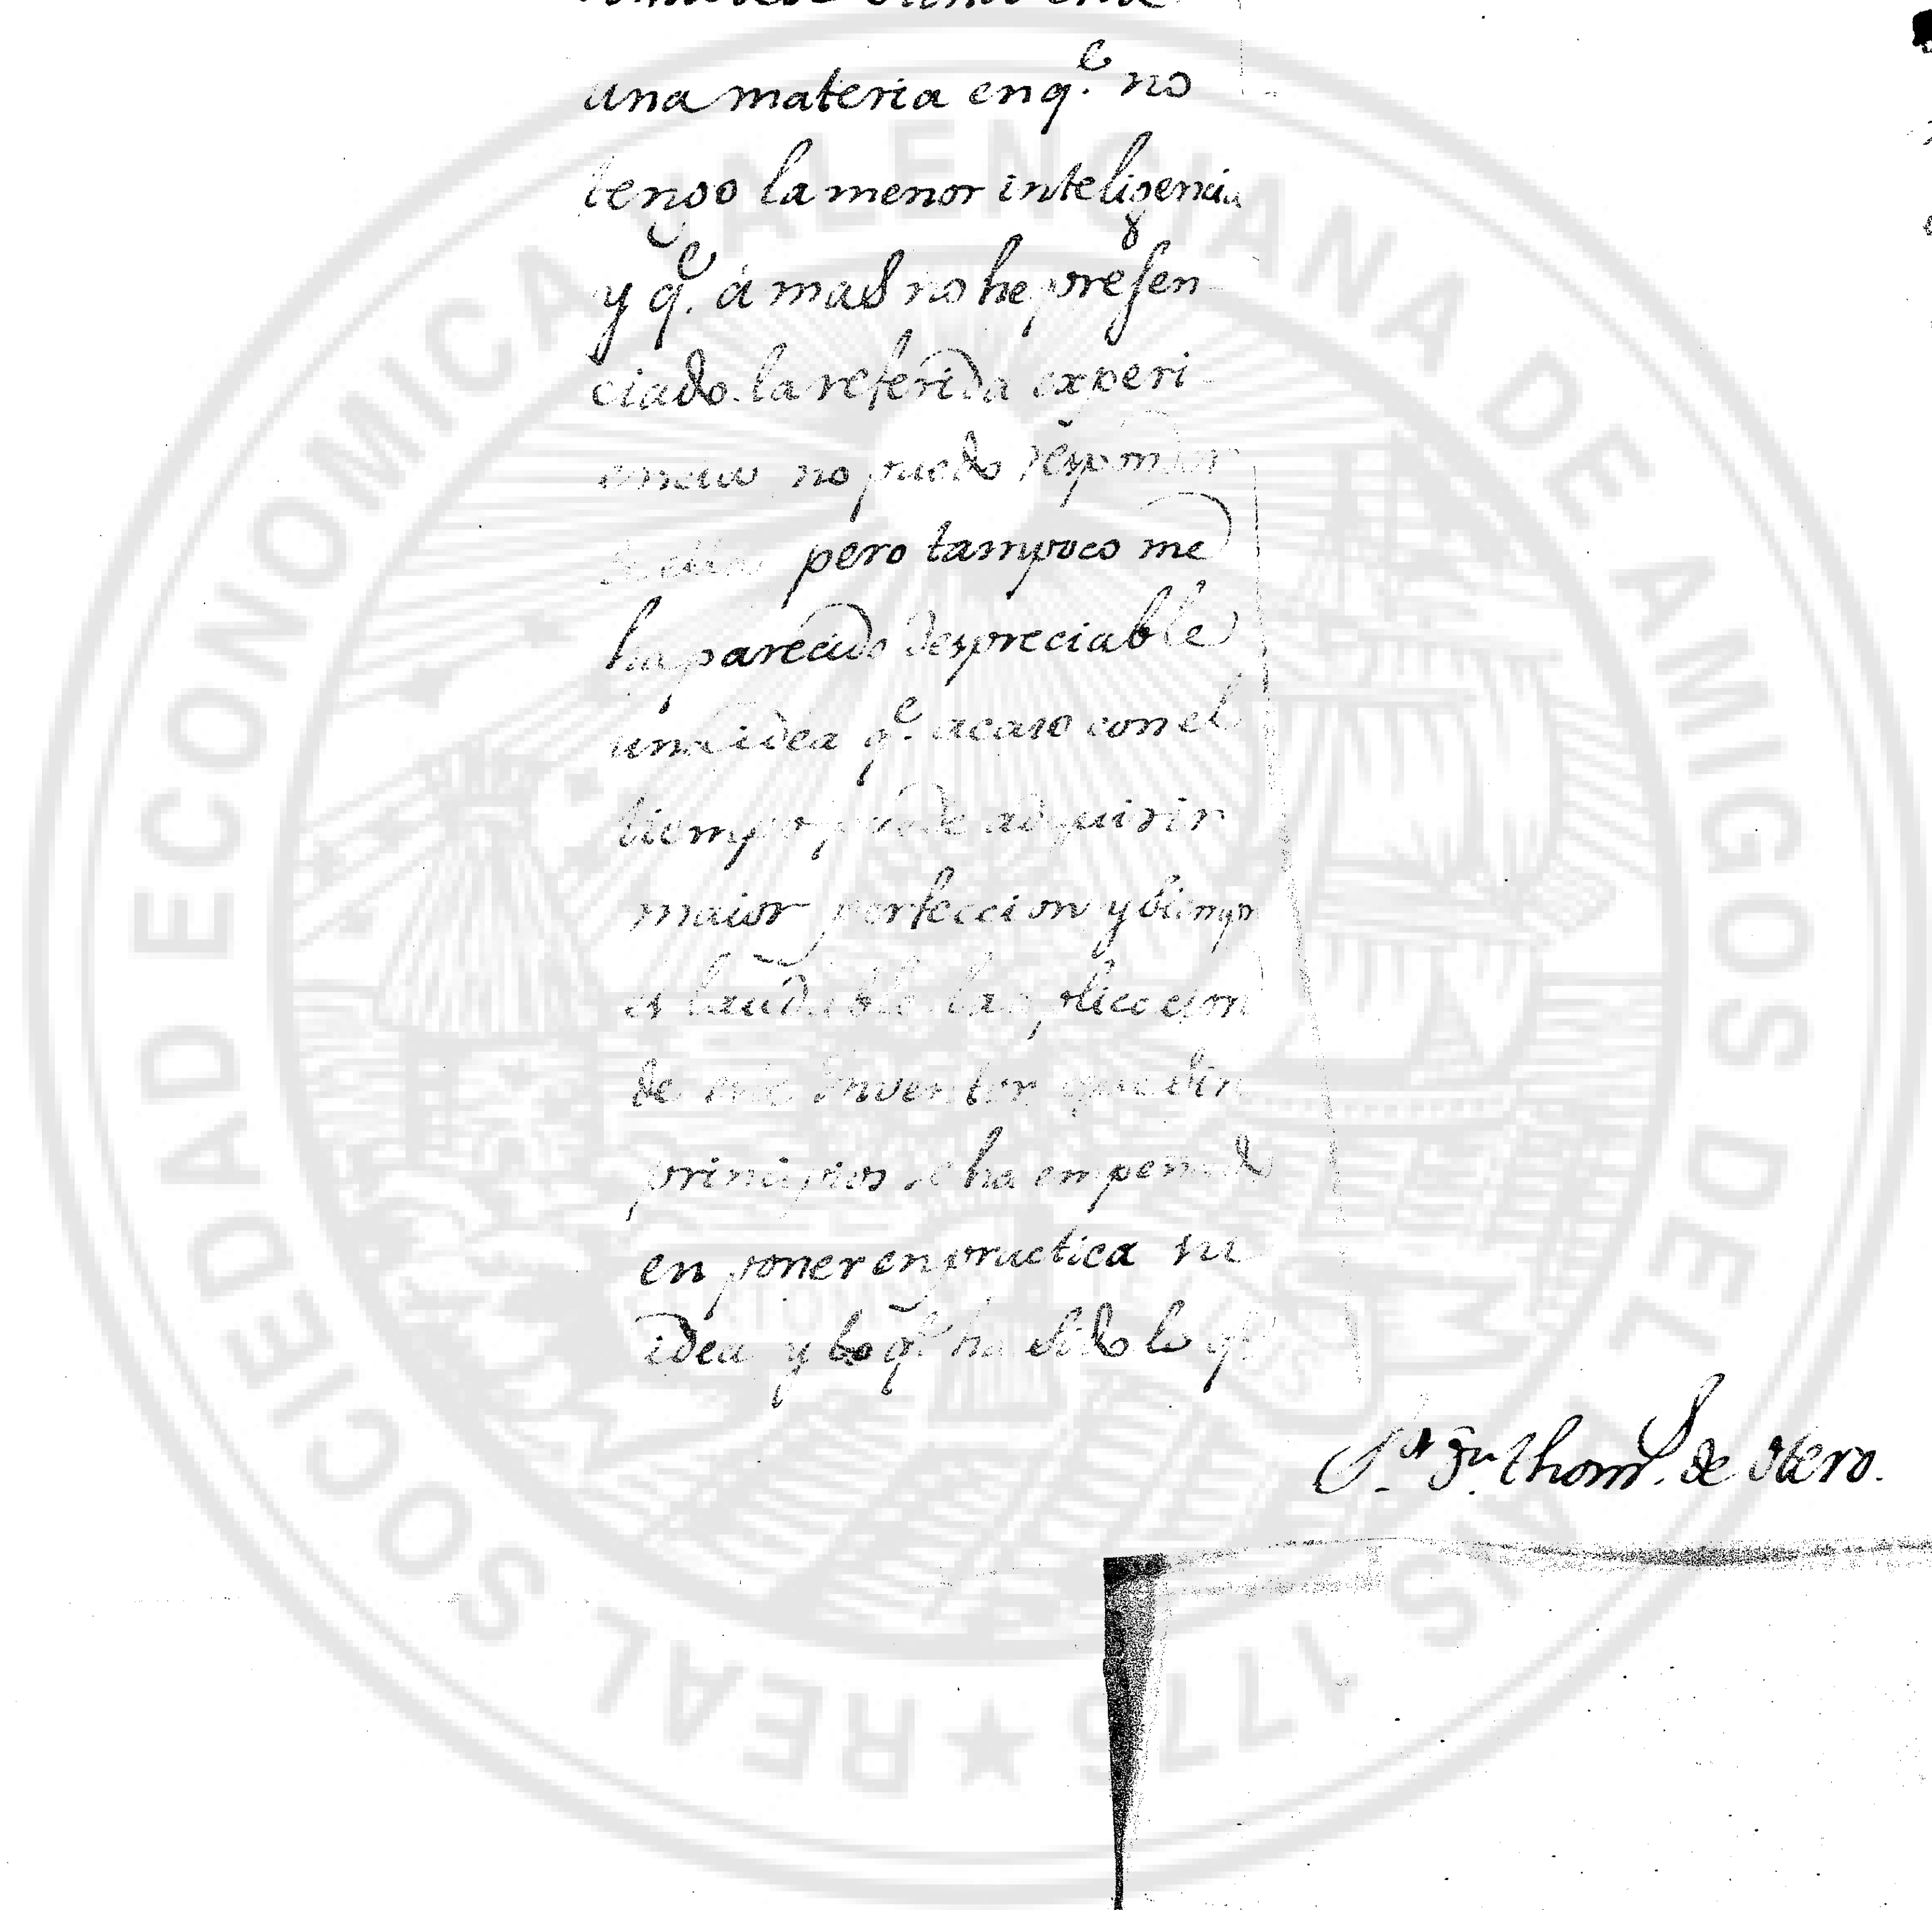 una materia en q.e no
tengo la menor inteligencia
y q.e á mas no he presen-
ciado la referida experi-
encia no puedo responder
de ella pero tampoco me
ha parecido despreciable
una idea q.e acaso con el
tiempo puede adquirir
maior perfeccion y siempr
es laudable la aplicacion
de este inventor que sin
principios se ha empeñado
en poner en practica su
idea y lo q.e ha sido lo q.e
S.or D.n Thom.s de Otero.
REAL SOCIEDAD ECONOMICA VALENCIANA DE AMIGOS DEL PAIS 1776